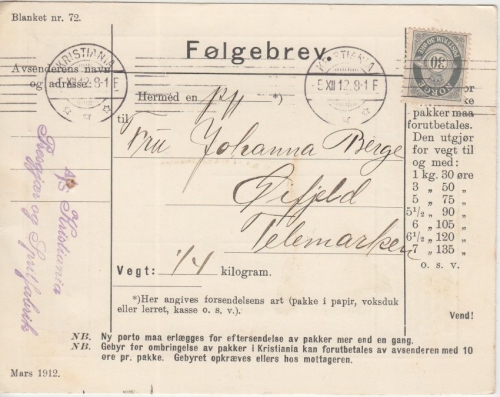 Blanket nr. 72.
Følgebrev.
KRISTIANIA
-5 XII 12. 8-1 F
KRISTIANIA
-5 XII 12. 8-1 E
30
NORGE
Avsenderens navn
og adresse:
Hermed en *)
til
Johanna Berge
Telemarken
Vegt: kilogram.
*)Her angives forsendelsens art (pakke i papir, voksduk
eller lerret, kasse o. s. v.).
for
pakker maa
forutbetales.
Den utgjør
for vegt til
og med:
1 kg. 30 øre
3 „ 50 „
5 „ 75 „
5½ „ 90 „
6 „ 105 „
6½ „ 120 „
7 „ 135 „
o. s. v.
Vend!
A/S Kristiania
NB. Ny porto maa erlægges for eftersendelse av pakker mer end en gang.
NB. Gebyr for ombringelse av pakker i Kristiania kan forutbetales av avsenderen med 10
øre pr. pakke. Gebyret opkræves ellers hos mottageren.
Mars 1912.